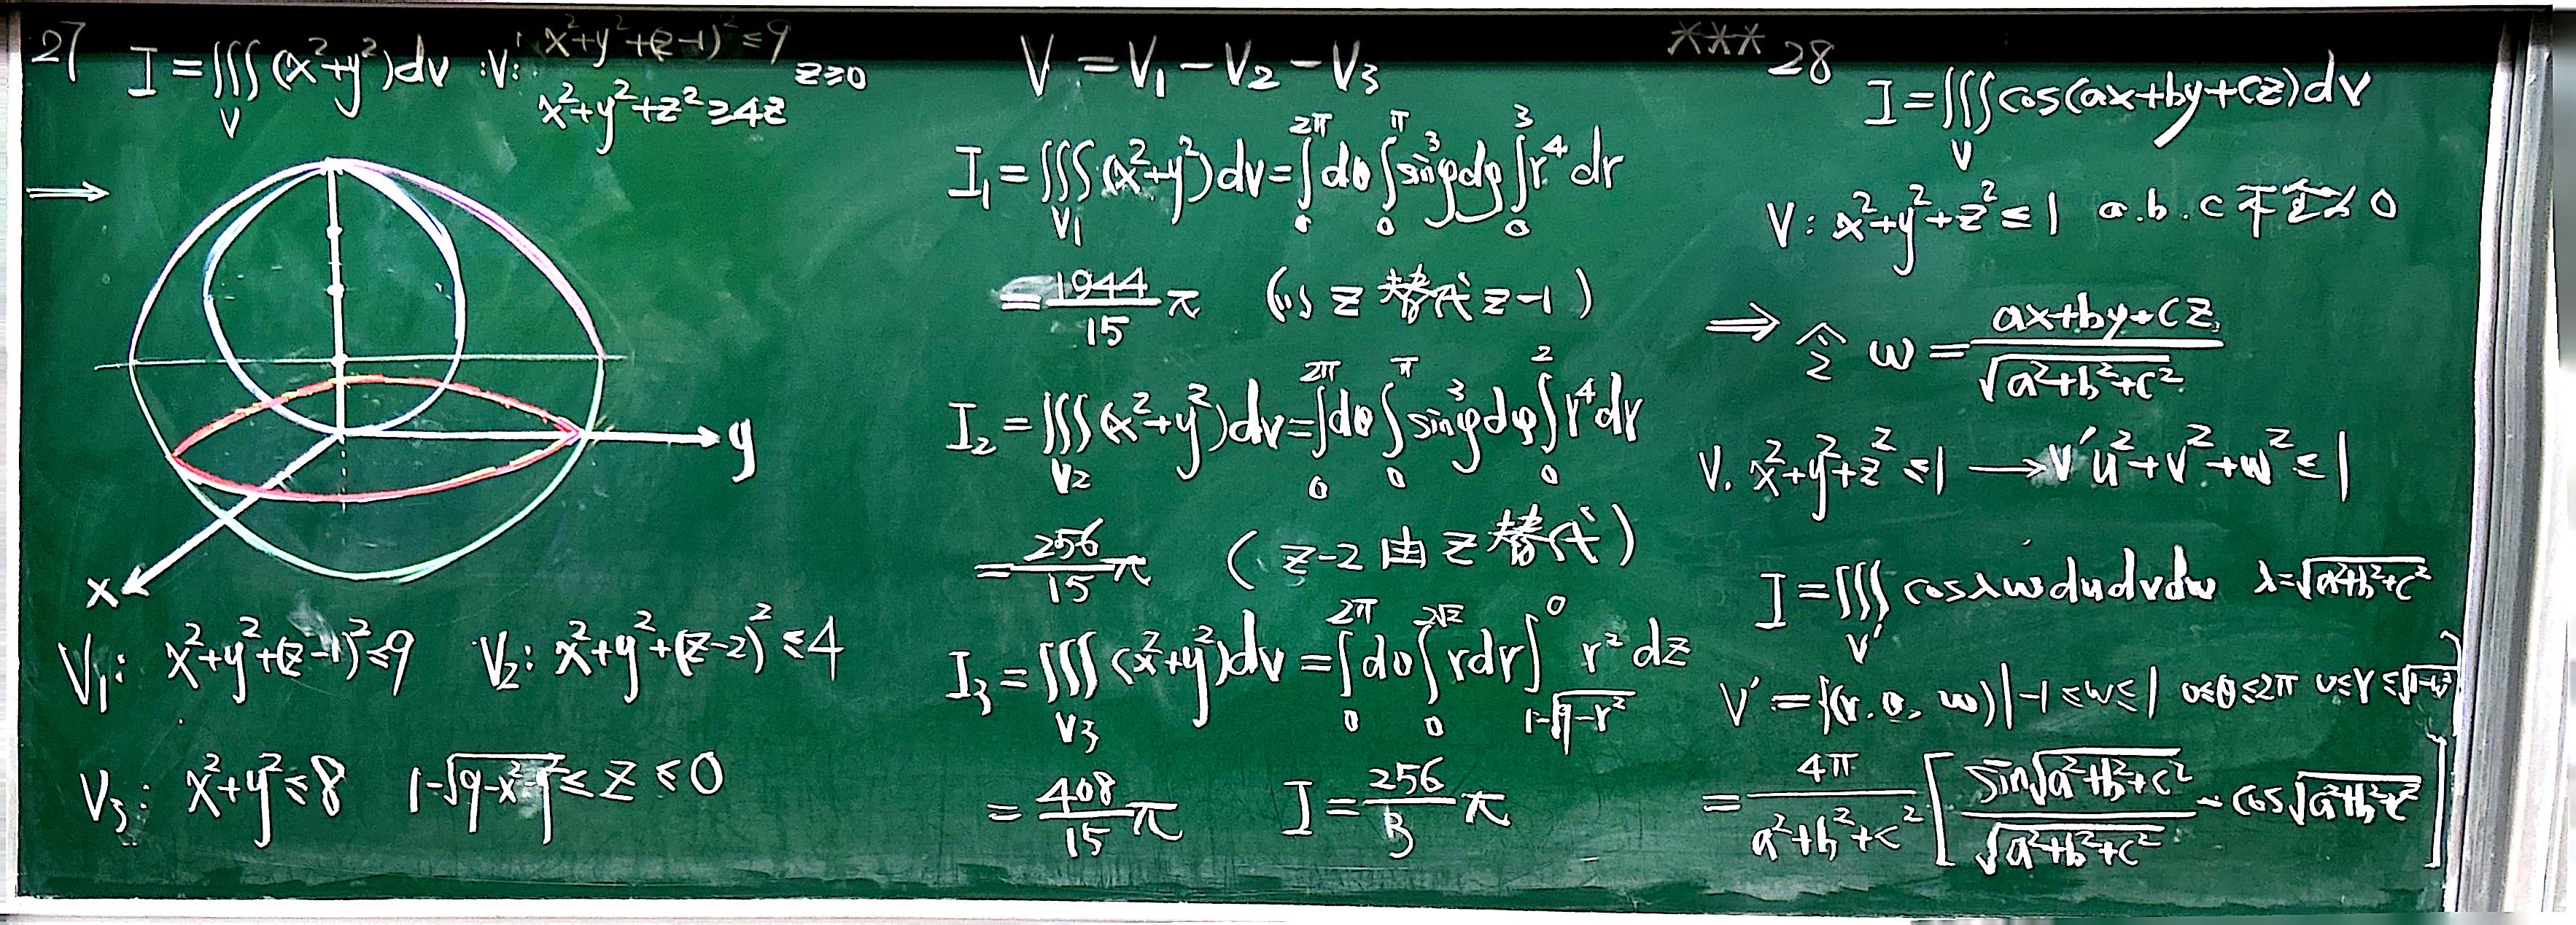 27 I=∭_V (x²+y²)dv :V: x²+y²+(z-1)²≤9 z≥0
x²+y²+z²≥4z
⟹
y
x
V₁: x²+y²+(z-1)²≤9 V₂: x²+y²+(z-2)²≤4
V₃: x²+y²≤8 1-√(9-x²-y²)≤z≤0
V=V₁-V₂-V₃
I₁=∭_{V₁}(x²+y²)dv=∫₀^{2π}dθ∫₀^π sin³φdφ∫₀³r⁴dr
=1944/15 π (以z替代z-1)
I₂=∭_{V₂}(x²+y²)dv=∫₀^{2π}dθ∫₀^π sin³φdφ∫₀²r⁴dr
=256/15 π (z-2由z替代)
I₃=∭_{V₃}(x²+y²)dv=∫₀^{2π}dθ∫₀^{2√2}rdr∫_{1-√(9-r²)}^0 r²dz
=408/15 π I=256/3 π
*** 28 I=∭_V cos(ax+by+cz)dv
V: x²+y²+z²≤1 a.b.c不全为0
⟹ 令 w=(ax+by+cz)/√(a²+b²+c²)
V. x²+y²+z²≤1 ⟶ V′u²+v²+w²≤1
I=∭_{V′} cosλwdudvdw λ=√(a²+b²+c²)
V′={(r.θ,w)|-1≤w≤1 0≤θ≤2π 0≤r≤√(1-w²)}
=4π/(a²+b²+c²)[sin√(a²+b²+c²)/√(a²+b²+c²)-cos√(a²+b²+c²)]